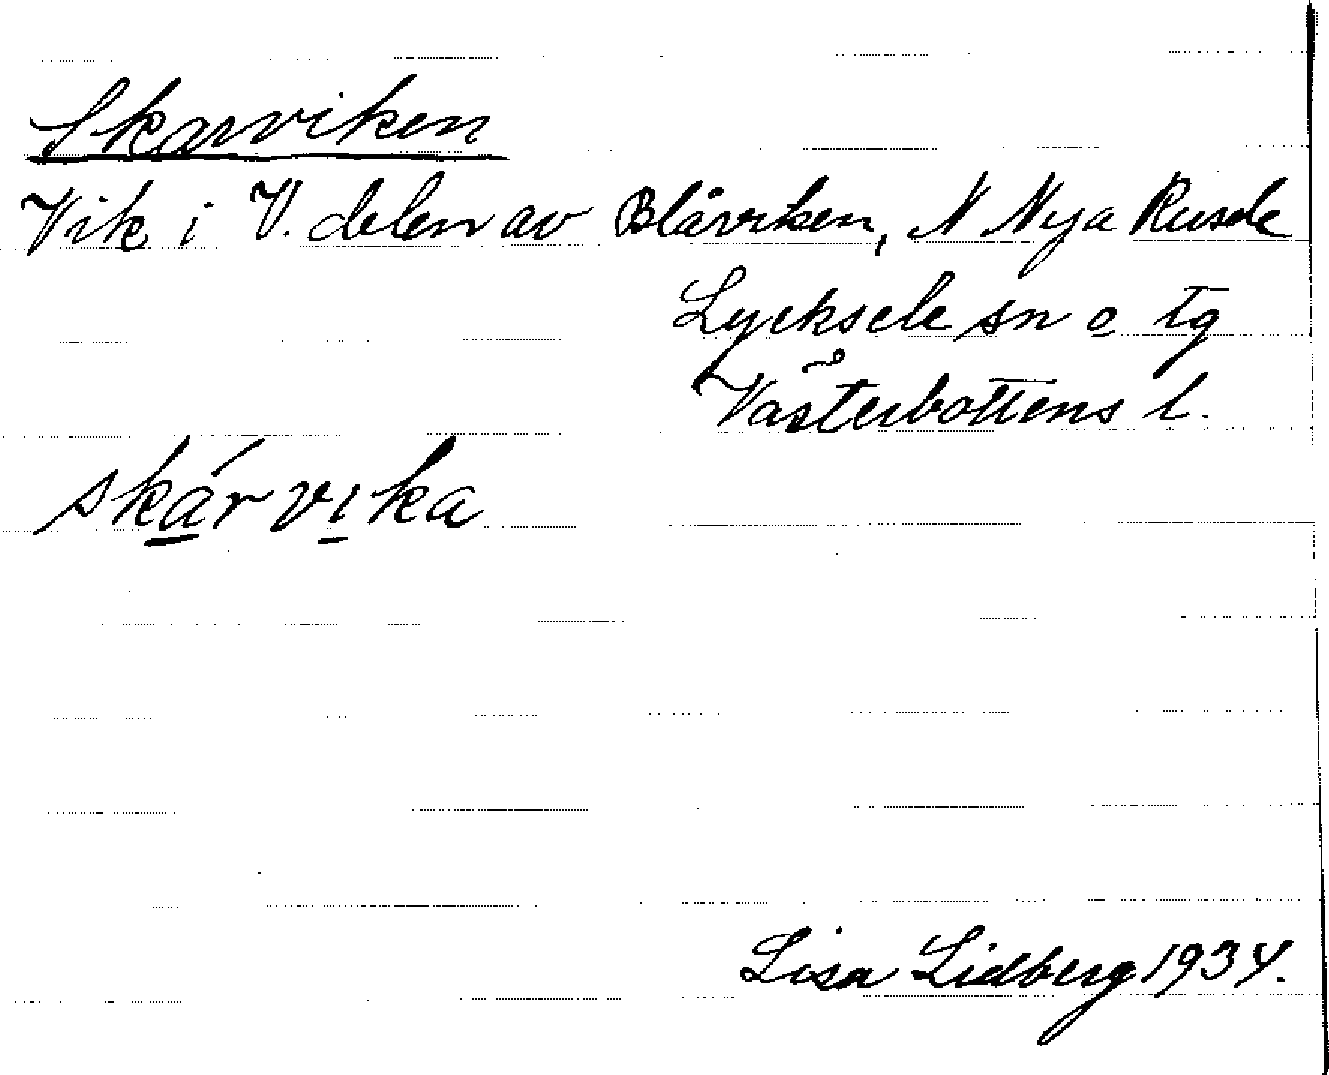 Skarviken
Vik i V. delen av Blåviken, N Nya Rusele
Lycksele sn o tg
Västerbottens l.
skárvika
Lisa Lidberg 1934.